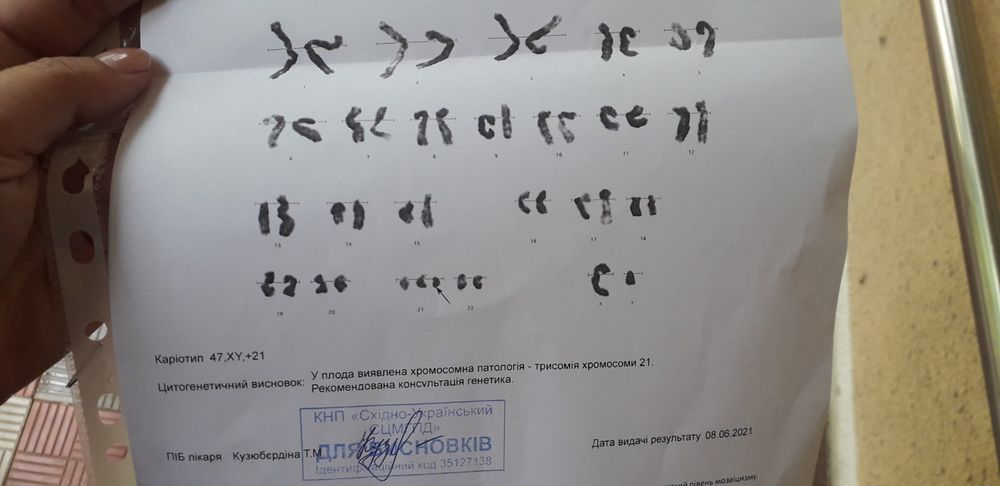 1 2 3 4 5
6 7 8 9 10 11 12
13 14 15 16 17 18
19 20 21 22 X Y
Каріотип 47,XY,+21
Цитогенетичний висновок: У плода виявлена хромосомна патологія - трисомія хромосоми 21.
Рекомендована консультація генетика.
КНП «Східно-Український
СЦМГПД»
ДЛЯ ВИСНОВКІВ
Ідентифікаційний код 35127138
ПІБ лікаря Кузюбєрдіна Т.М
Дата видачі результату 08.06.2021
рівень мозаїцизму.